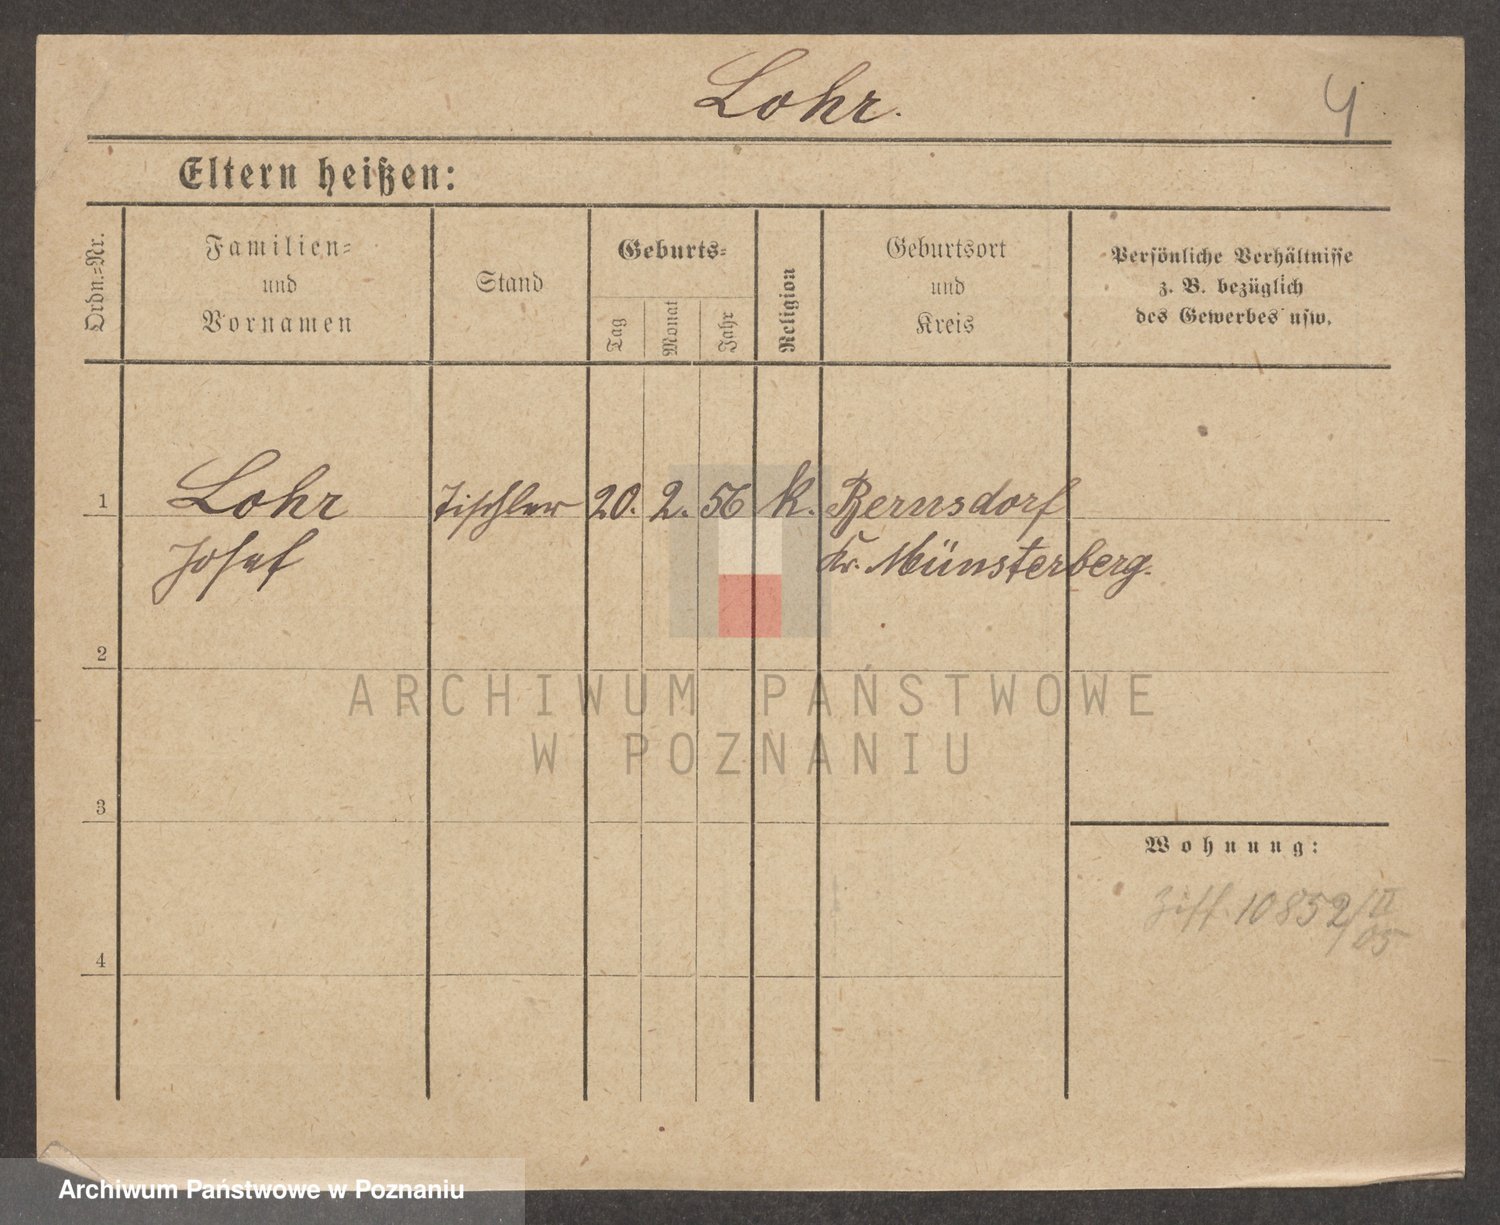 Lohr.
4
Eltern heißen:
Ordn.=Nr.
Familien=
und
Vornamen
Stand
Geburts=
Tag
Monat
Jahr
Religion
Geburtsort
und
Kreis
Persönliche Verhältnisse
z. B. bezüglich
des Gewerbes usw.
1 Lohr Tischler 20. 2. 56 k. Bernsdorf
Josef Kr. Münsterberg.
2
3
4
Wohnung:
Ziff. 10852/II
05
ARCHIWUM PAŃSTWOWE
W POZNANIU
Archiwum Państwowe w Poznaniu